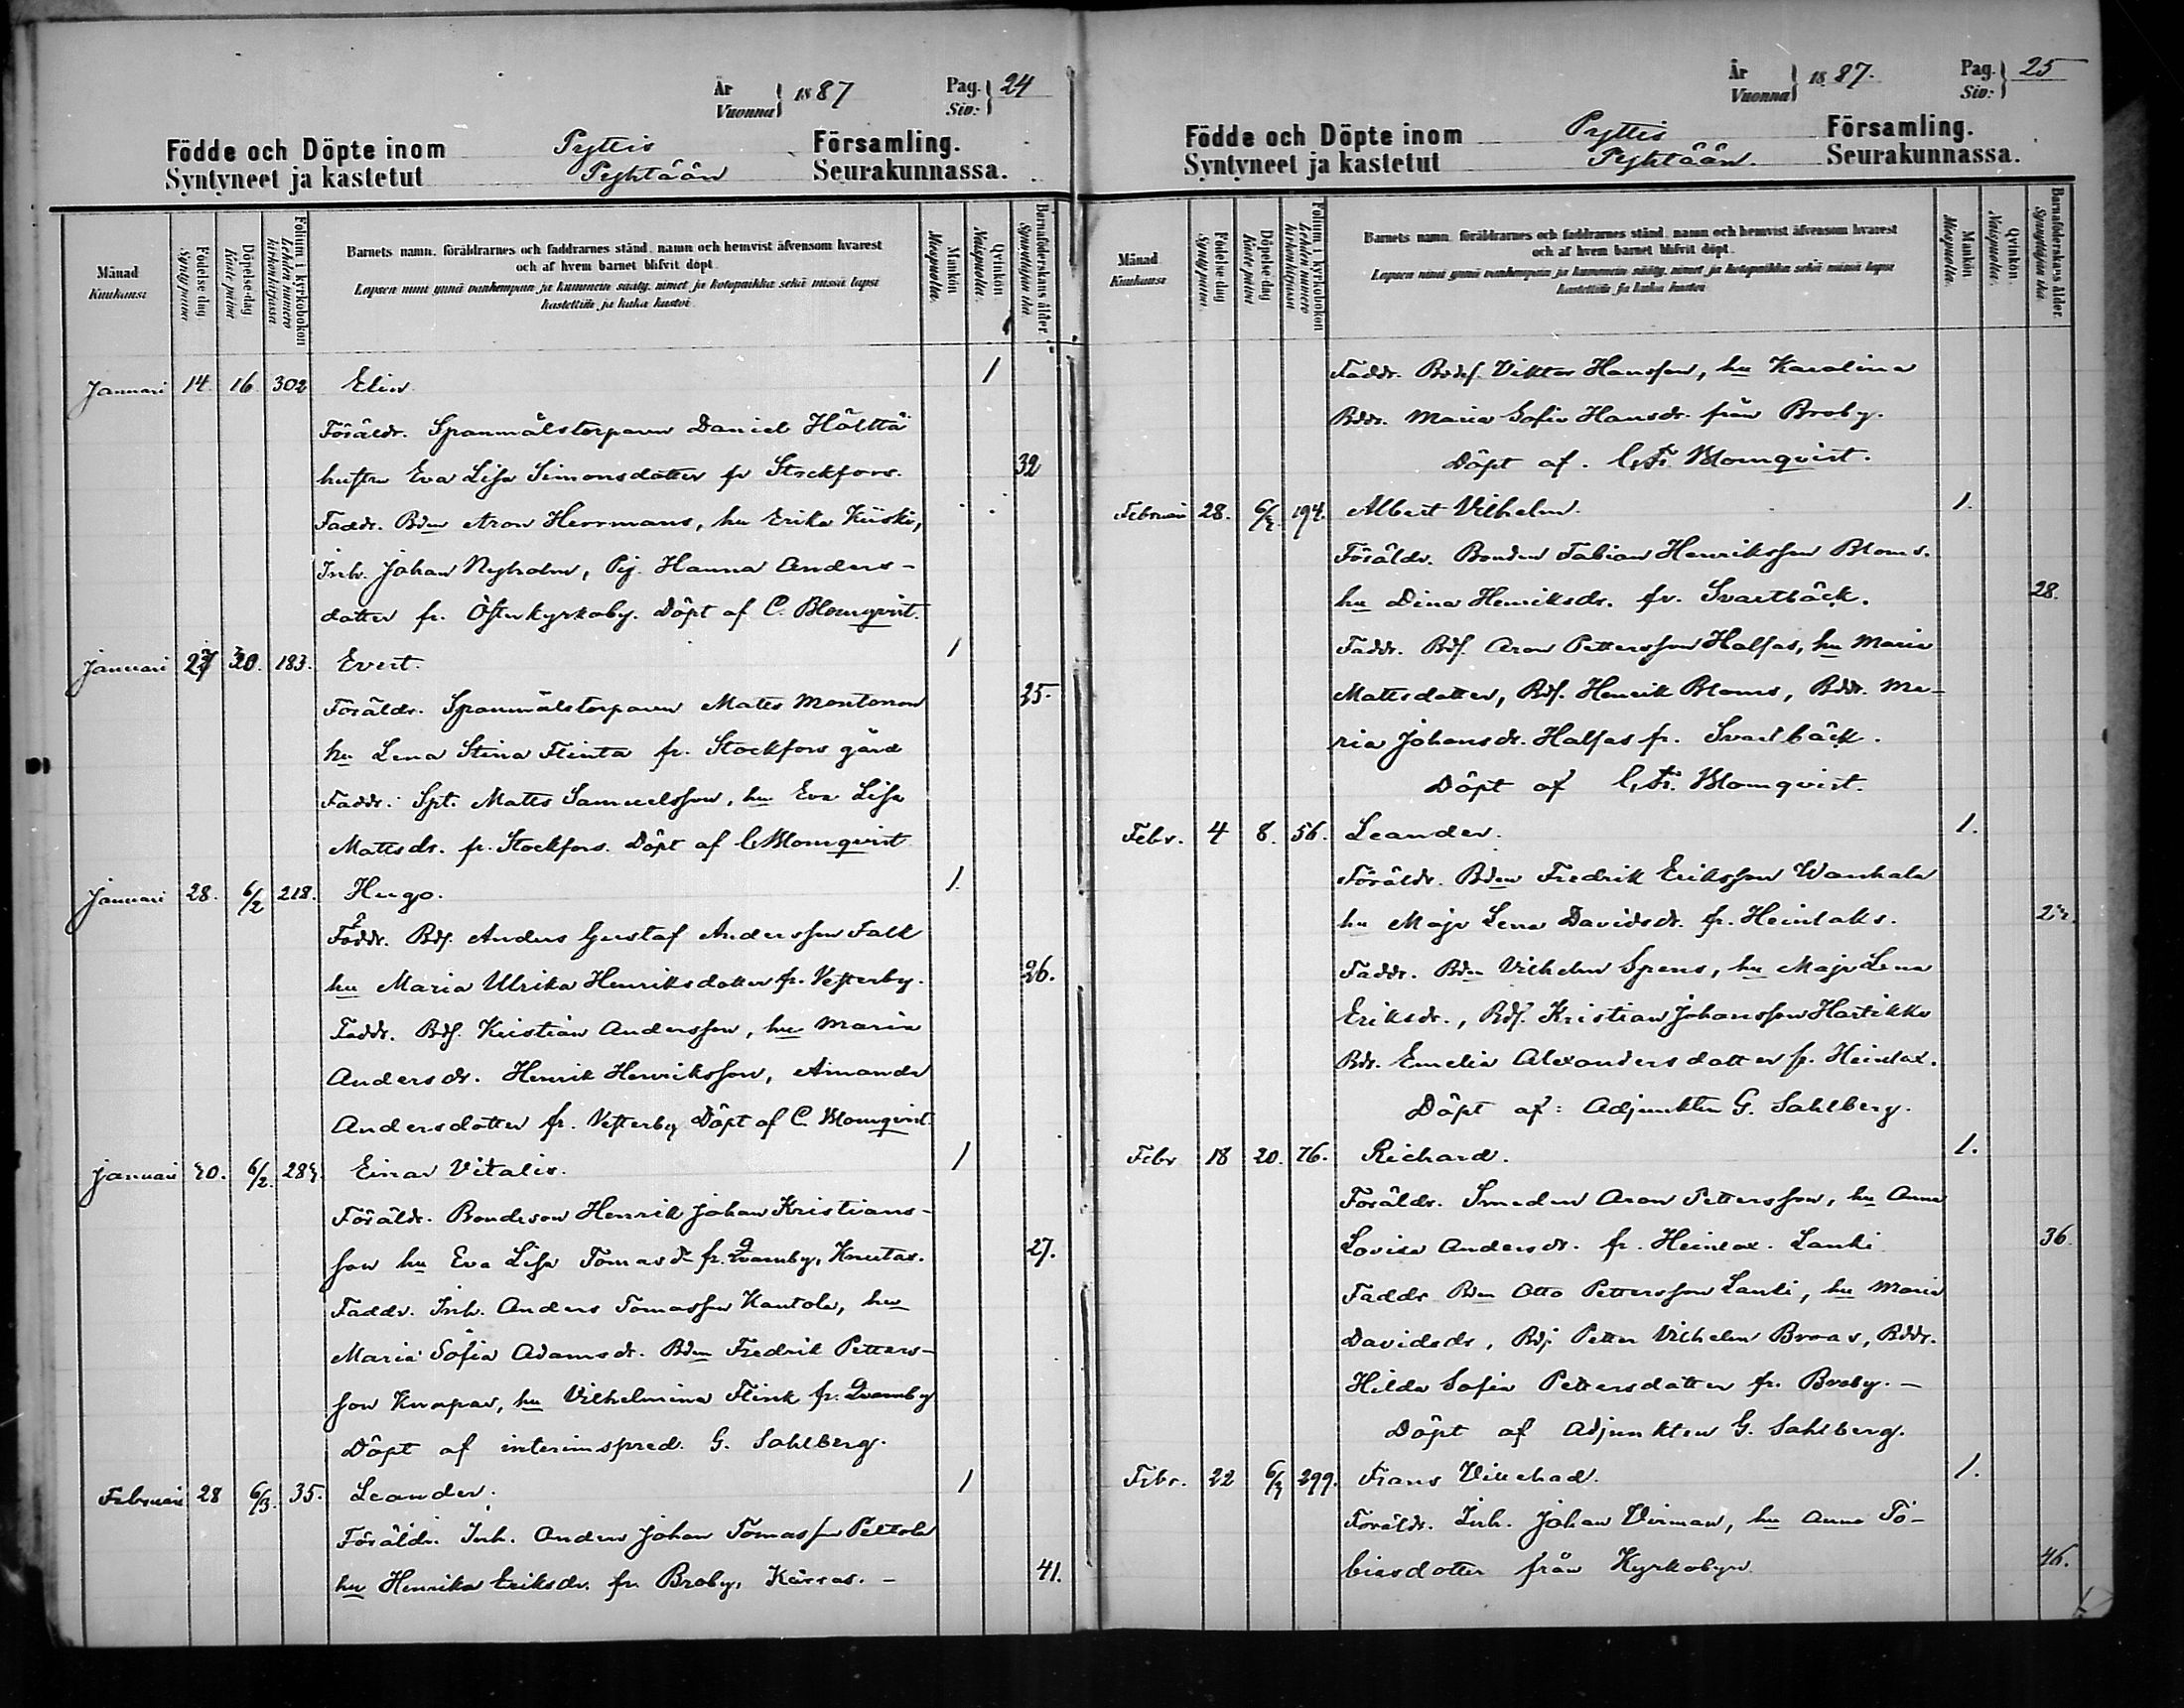 År
Vuonna } 1887
Pag.
Siv: } 24
Födde och Döpte inom Pyttis Församling.
Syntyneet ja kastetut Pyhtään Seurakunnassa.
Månad
Kuukausi
Födelse-dag
Syntypäivä
Döpelse-dag
Kaste päivä
Folium i kyrkoboken
Lehden numero kirkonkirjassa
Barnets namn, föräldrarnes och faddrarnes stånd, namn och hemvist äfvensom hvarest
och af hvem barnet blifvit döpt.
Lapsen nimi ynnä vanhempain ja kummein sääty, nimet ja kotopaikka sekä missä lapsi
kastettiin ja kuka kastoi.
Mankön
Miespuolia.
Qvinkön
Naispuolia.
Barnaföderskans ålder.
Synnyttäjän ikä.
Januari 14. 16 302 Elin 1
Föräldr. Spanmålstorparen Daniel Hölttä
hustru Eva Lisa Simonsdotter fr Stockfors. 32
Faddr. Bdn Aron Herrmans, hu Erika Kiiski,
Inh. Johan Nyholm, Pig. Hanna Anders-
dotter fr. Österkyrkoby. Döpt af C. Blomqvist.
Januari 27 30. 183. Evert. 1
Föräldr. Spanmålstorparen Matts Montonen 25.
hu Lena Stina Flinta fr. Stockfors gård
Faddr. Spt. Matts Samuelsson, hu Eva Lisa
Mattsdr. fr. Stockfors. Döpt af C. Blomqvist
Januari 28. 6/2 218. Hugo. 1.
Föddr. Bds. Anders Gustaf Andersson Falk
hu Maria Ulrika Henriksdotter fr. Vesterby. 26.
Faddr. Bds. Kristian Andersson, hu Maria
Andersdr. Henrik Henriksson, Amanda
Andersdotter fr. Vesterby Döpt af C. Blomqvist.
Januari 30. 6/2. 283. Einar Vitalis. 1
Föräldr. Bondeson Henrik Johan Kristians-
son hu Eva Lisa Tomasdr fr. Qvarnby, Knutas. 27.
Faddr. Inh. Anders Tomasson Kantola, hu
Maria Sofia Adamsdr. Bdn Fredrik Petters-
son Knapas, hu Vilhelmina Flink fr. Qvarnby
Döpt af interimspred. G. Sahlberg.
Februari 28 6/3. 35. Leander. 1
Föräldr. Inh. Anders Johan Tomasson Peltola
hu Henrika Eriksdr. fr. Broby, Kärras. – 41.
År
Vuonna } 1887.
Pag.
Siv: } 25
Födde och Döpte inom Pyttis Församling.
Syntyneet ja kastetut Pyhtään. Seurakunnassa.
Månad
Kuukausi
Födelse-dag
Syntypäivä
Döpelse-dag
Kaste päivä
Folium i kyrkoboken
Lehden numero kirkonkirjassa
Barnets namn, föräldrarnes och faddrarnes stånd, namn och hemvist äfvensom hvarest
och af hvem barnet blifvit döpt.
Lapsen nimi ynnä vanhempain ja kummein sääty, nimet ja kotopaikka sekä missä lapsi
kastettiin ja kuka kastoi.
Mankön
Miespuolia.
Qvinkön.
Naispuolia.
Barnaföderskans ålder.
Synnyttäjän ikä.
Faddr. Bds. Viktor Hansson, hu Karolina
Bddr. Maria Sofia Hansdr. från Broby.
Döpt af. C. Fr. Blomqvist.
Februari 28. 6/3. 194. Albert Vilhelm. 1.
Föräldr. Bonden Fabian Henriksson Bloms.
hu Dina Henriksdr. fr. Svartbäck. 28.
Faddr. Bds. Aron Pettersson Halfas, hu Maria
Mattsdotter, Bds. Henrik Bloms, Bddr. Ma-
ria Johansdr. Halfas fr. Svartbäck.
Döpt af C. Fr. Blomqvist.
Febr. 4 8. 56. Leander. 1.
Föräldr. Bden Fredrik Eriksson Wanhala
hu Maja Lena Davidsdr. fr. Heinlaks.
Faddr. Bdn Vilhelm Spens, hu Maja Lena
Eriksdr., Bds. Kristian Johansson Hartikka
Bdr. Emelia Alexandersdotter fr. Heinlax.
Döpt af: Adjunkten G. Sahlberg.
Febr 18 20. 76. Richard. 1.
Föräldr. Smeden Aron Pettersson, hu Anna
Lovisa Andersdr. fr. Heinlax. Lanki 36.
Faddr Bdn Otto Pettersson Lanki, hu Maria
Davidsdr, Bds. Petter Vilhelm Broas, Bddr.
Hilda Sofia Pettersdotter fr. Broby. –
Döpt af Adjunkten G. Sahlberg.
Febr. 22 6/3 299. Frans Villehad. 1.
Föräldr. Inh. Johan Virman, hu Anna To-
biasdotter från Kyrkobyn. 46.